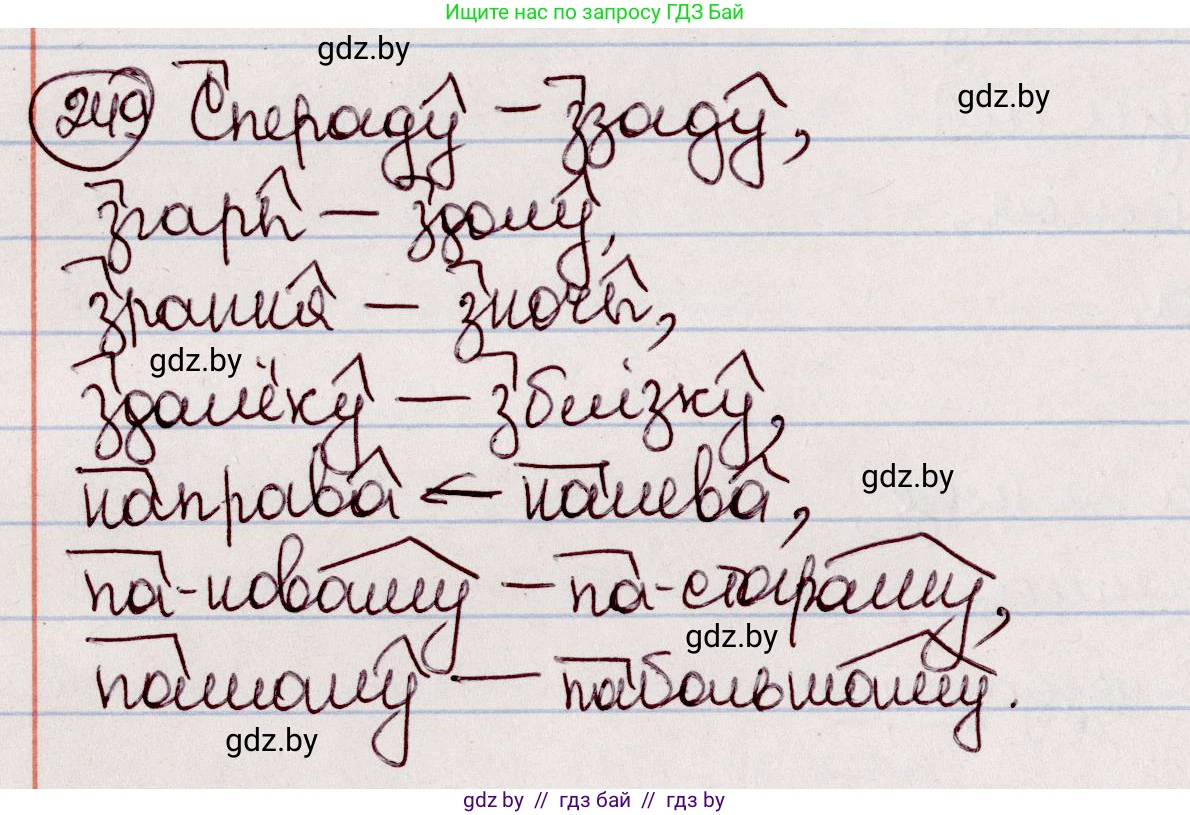 Ищите нас по запросу ГДЗ Бай
gdz.by
249 Спераду – ззаду,
gdz.by
згары – здолу,
зрання – зночы,
gdz.by
здалёку – зблізку,
направа – налева,
gdz.by
па-новаму – па-стараму,
gdz.by
памалу – пабольшаму.
gdz.by
gdz by // гдз бай // гдз by